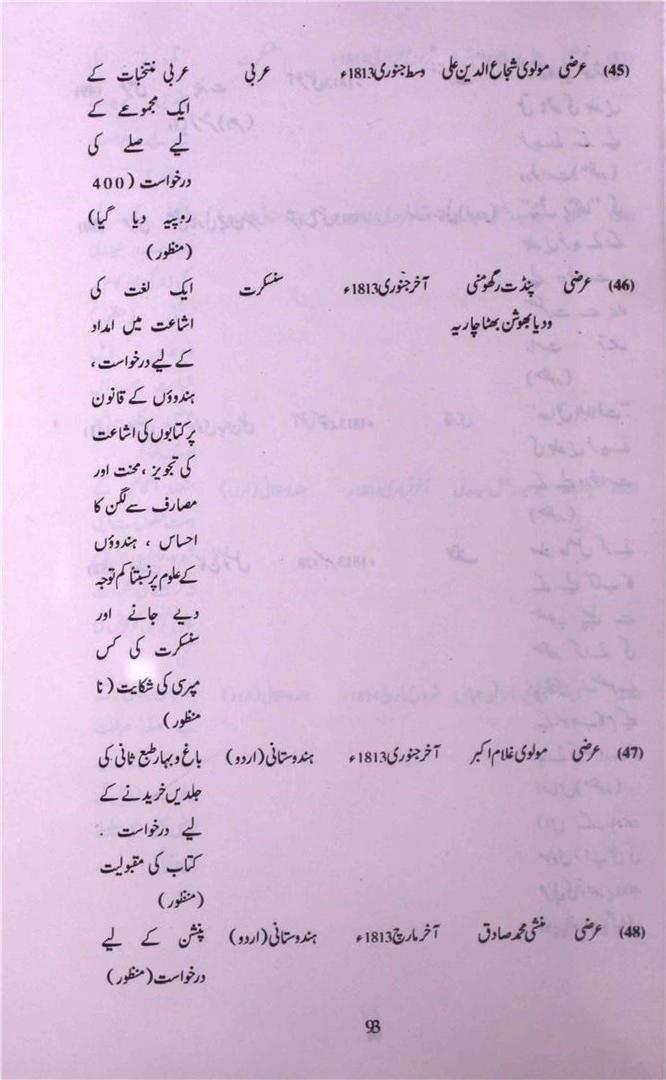 (45) عرضی مولوی شجاع الدین علی وسط جنوری 1813ء عربی عربی منتخبات کے
ایک مجموعے کے
لیے صلے کی
درخواست (400
روپیہ دیا گیا)
(منظور)
(46) عرضی پنڈت رگھومنی آخر جنوری 1813ء سنسکرت ایک لغت کی
ودیا بھوشن بھٹاچاریہ اشاعت میں امداد
کے لیے درخواست ،
ہندوؤں کے قانون
پر کتابوں کی اشاعت
کی تجویز ، محنت اور
مصارف سے لگن کا
احساس ، ہندوؤں
کے علوم پر نسبتاً کم توجہ
دیے جانے اور
سنسکرت کی کس
مپرسی کی شکایت (نا
منظور)
(47) عرضی مولوی غلام اکبر آخر جنوری 1813ء ہندوستانی (اردو) باغ و بہار طبع ثانی کی
جلدیں خریدنے کے
لیے درخواست .
کتاب کی مقبولیت
(منظور)
(48) عرضی منشی محمد صادق آخر مارچ 1813ء ہندوستانی (اردو) پنشن کے لیے
درخواست (منظور)
93